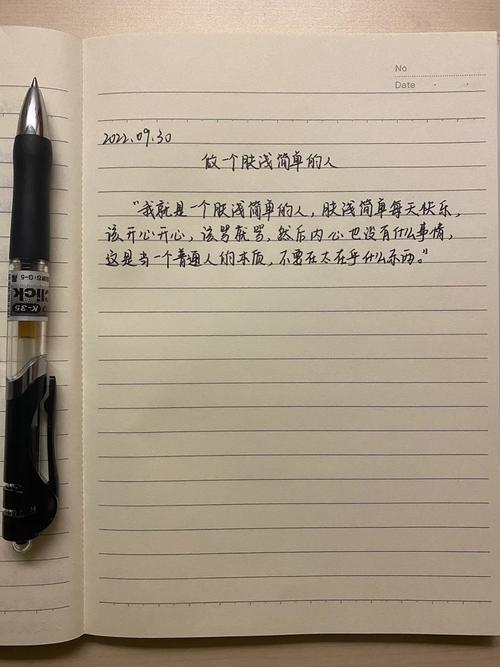 No
Date
2022.09.30
做一个肤浅简单的人
“我就是一个肤浅简单的人，肤浅简单每天快乐，
该开心开心，该骂就骂，然后内心也没有什么事情，
这是当一个普通人的本质，不要在太在乎什么东西。”
click
K-35
G-5